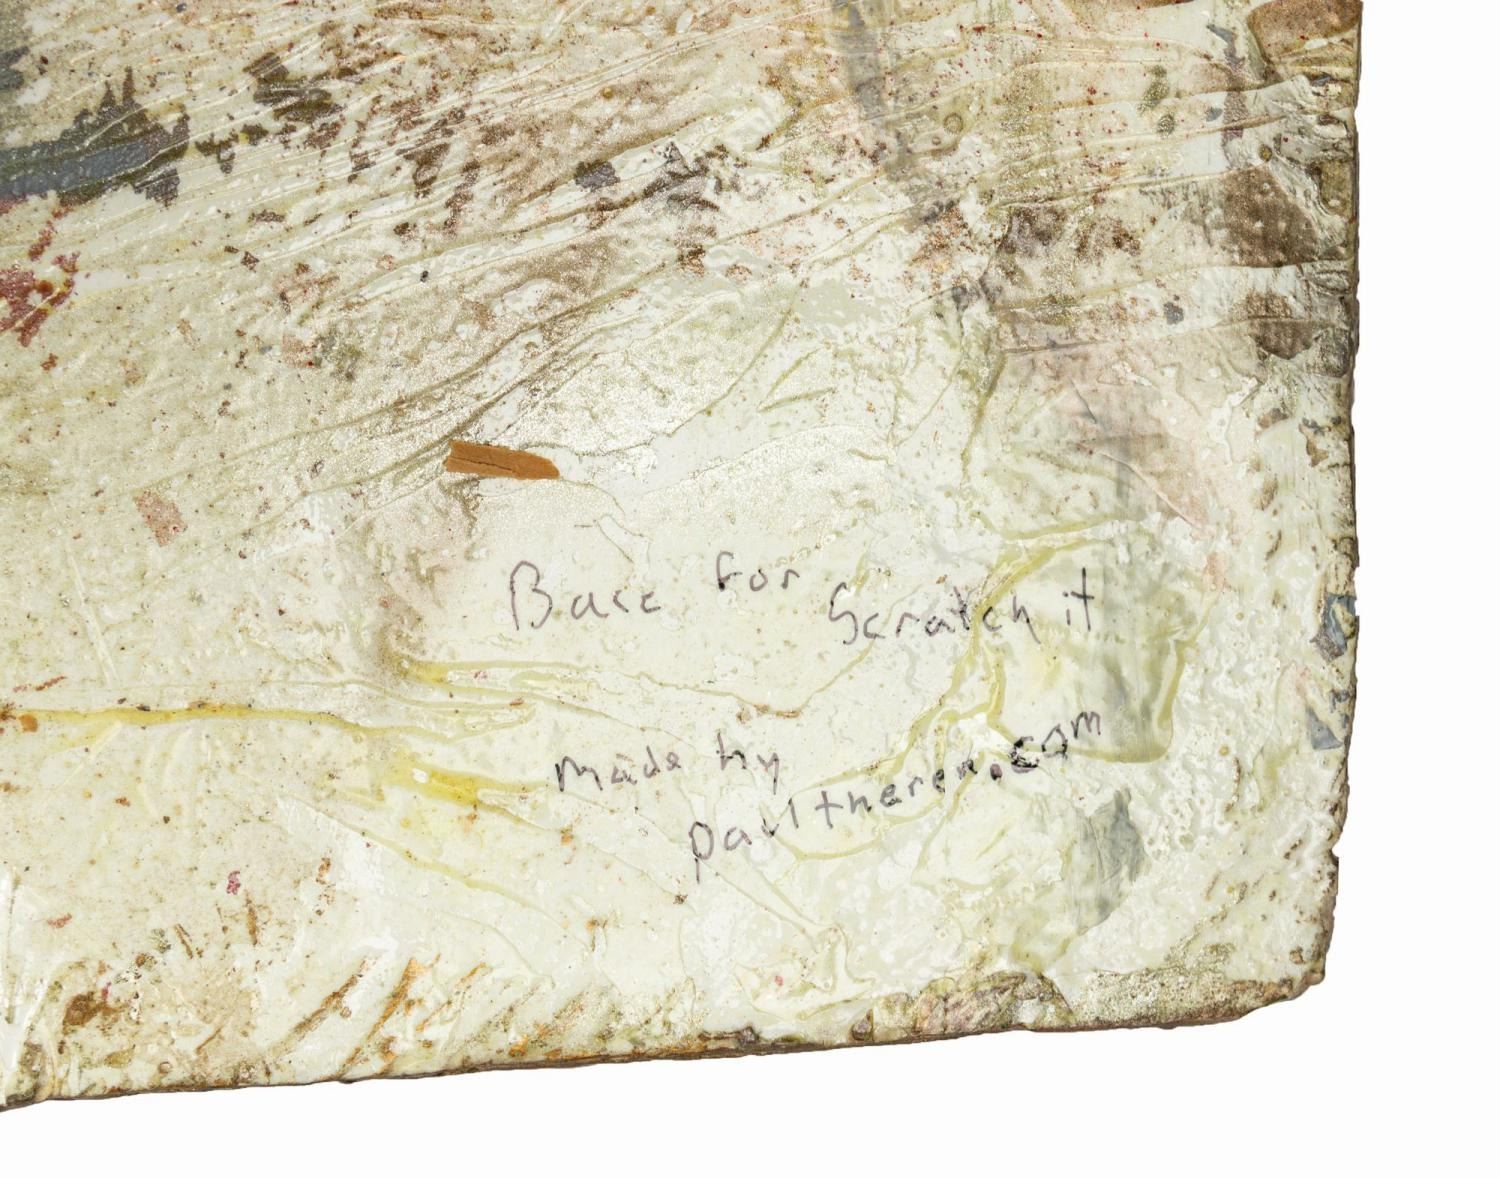 Base for Scratch it
made by
paultheren.com